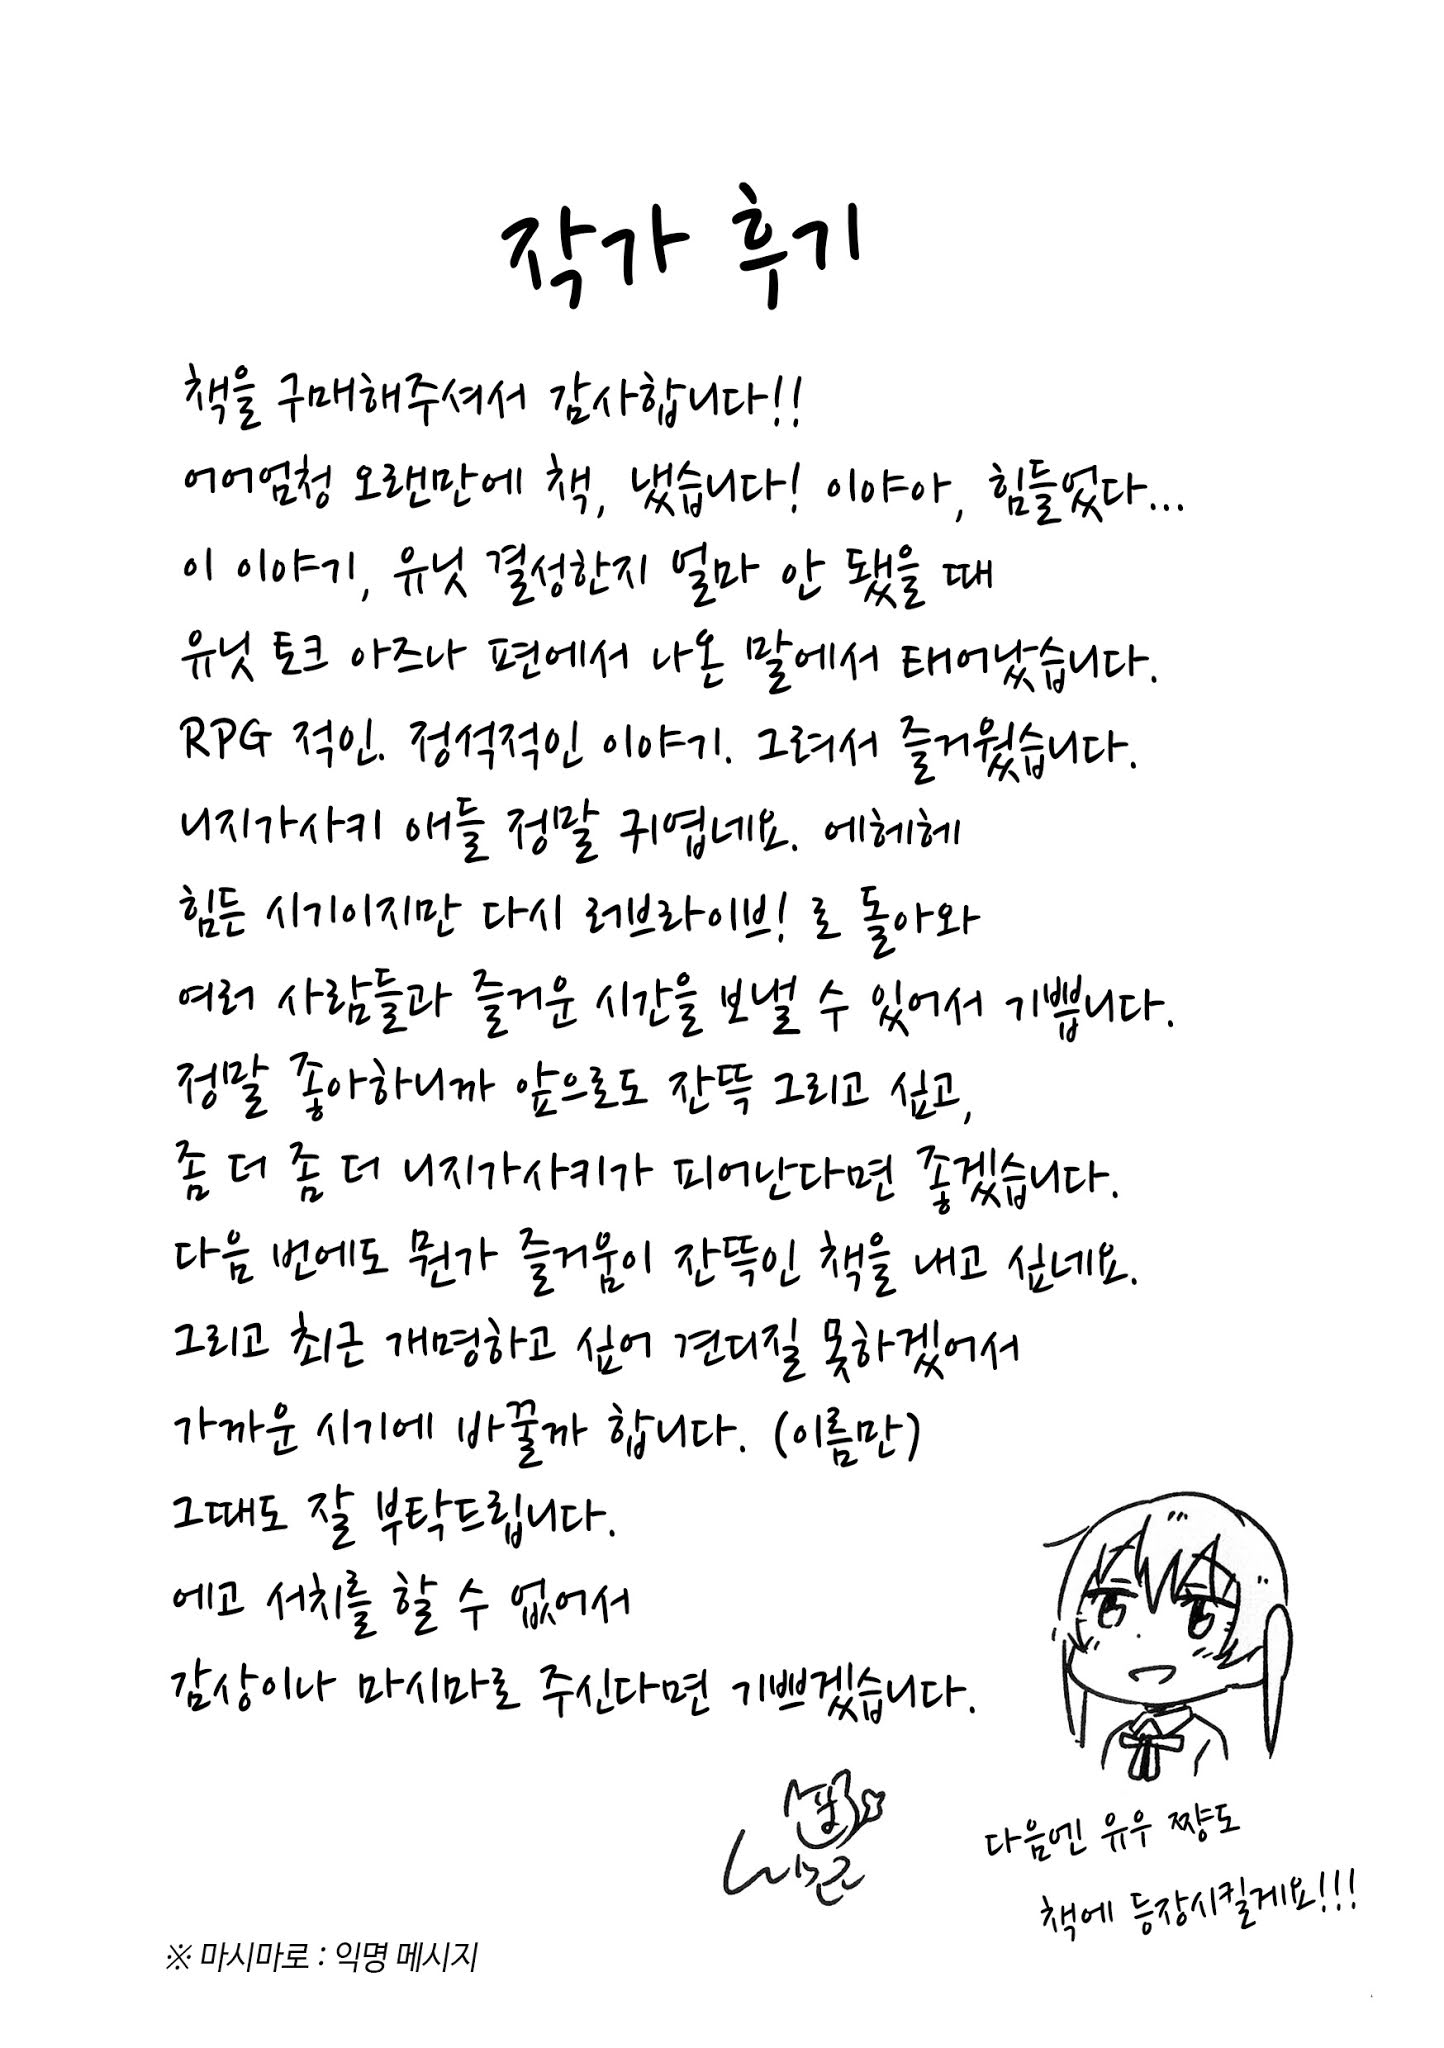 작가 후기
책을 구매해주셔서 감사합니다!!
어어엄청 오랜만에 책, 냈습니다! 이야아, 힘들었다...
이 이야기, 유닛 결성한지 얼마 안 됐을 때
유닛 토크 아즈나 편에서 나온 말에서 태어났습니다.
RPG 적인. 정석적인 이야기. 그려서 즐거웠습니다.
니지가사키 애들 정말 귀엽네요. 에헤헤
힘든 시기이지만 다시 러브라이브! 로 돌아와
여러 사람들과 즐거운 시간을 보낼 수 있어서 기쁩니다.
정말 좋아하니까 앞으로도 잔뜩 그리고 싶고,
좀 더 좀 더 니지가사키가 피어난다면 좋겠습니다.
다음 번에도 뭔가 즐거움이 잔뜩인 책을 내고 싶네요.
그리고 최근 개명하고 싶어 견디질 못하겠어서
가까운 시기에 바꿀까 합니다. (이름만)
그때도 잘 부탁드립니다.
에고 서치를 할 수 없어서
감상이나 마시마로 주신다면 기쁘겠습니다.
다음엔 유우 쨩도
책에 등장시킬게요!!!
※ 마시마로 : 익명 메시지